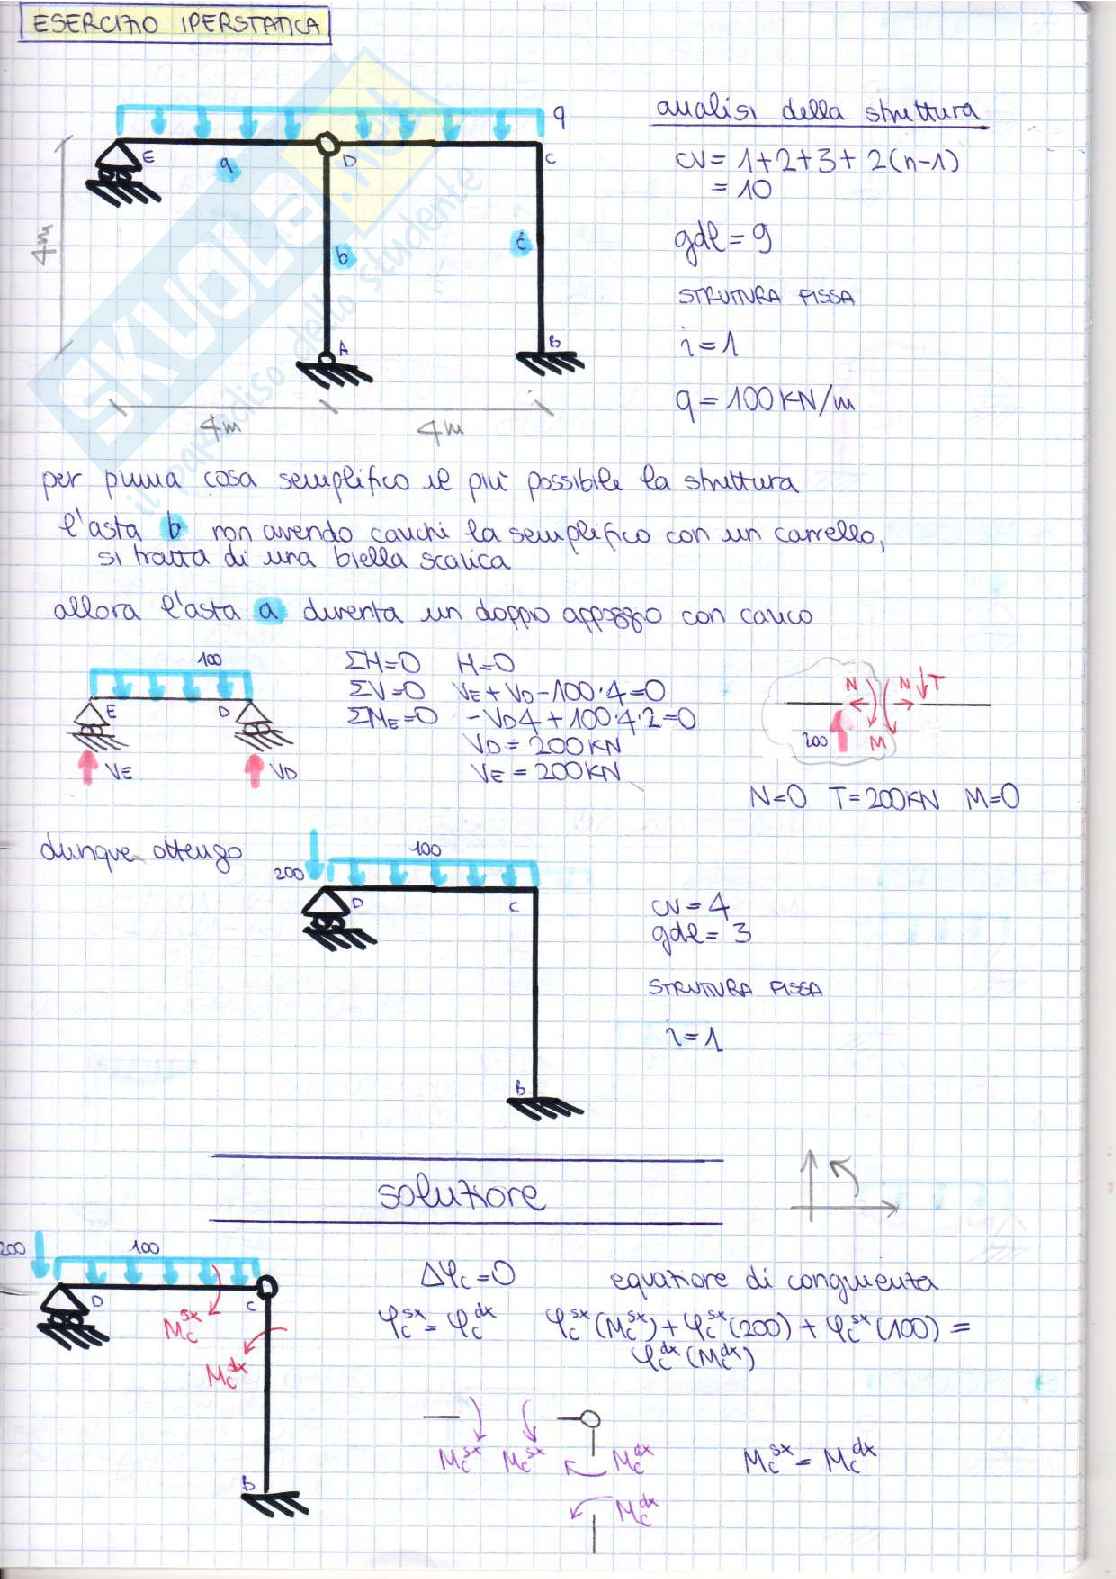 ESERCIZIO IPERSTATICA
q
analisi della struttura
E
a
D
C
cv = 1+2+3+2(n-1)
= 10
4m
b
c
gdl = 9
STRUTTURA FISSA
A
B
i=1
4m
4m
q = 100 KN/m
SKUOLA.net
il paradiso dello studente
per prima cosa semplifico il più possibile la struttura
l'asta b non avendo carichi la semplifico con un carrello,
si tratta di una biella scarica
allora l'asta a diventa un doppio appoggio con carico
100
E
D
VE
VD
ΣH=0 H=0
ΣV=0 VE+VD-100·4=0
ΣME=0 -VD4+100·4·2=0
VD = 200KN
VE = 200KN
N
N
T
200
M
N=0 T=200KN M=0
dunque ottengo
200
100
D
C
B
cv = 4
gdl = 3
STRUTTURA FISSA
i=1
soluzione
200
100
D
C
Mc^sx
Mc^dx
B
Δφc=0 equazione di congruenza
φc^sx = φc^dx φc^sx(Mc^sx)+φc^sx(200)+φc^sx(100) =
φc^dx(Mc^dx)
Mc^sx Mc^sx Mc^dx
Mc^dx
Mc^sx = Mc^dx